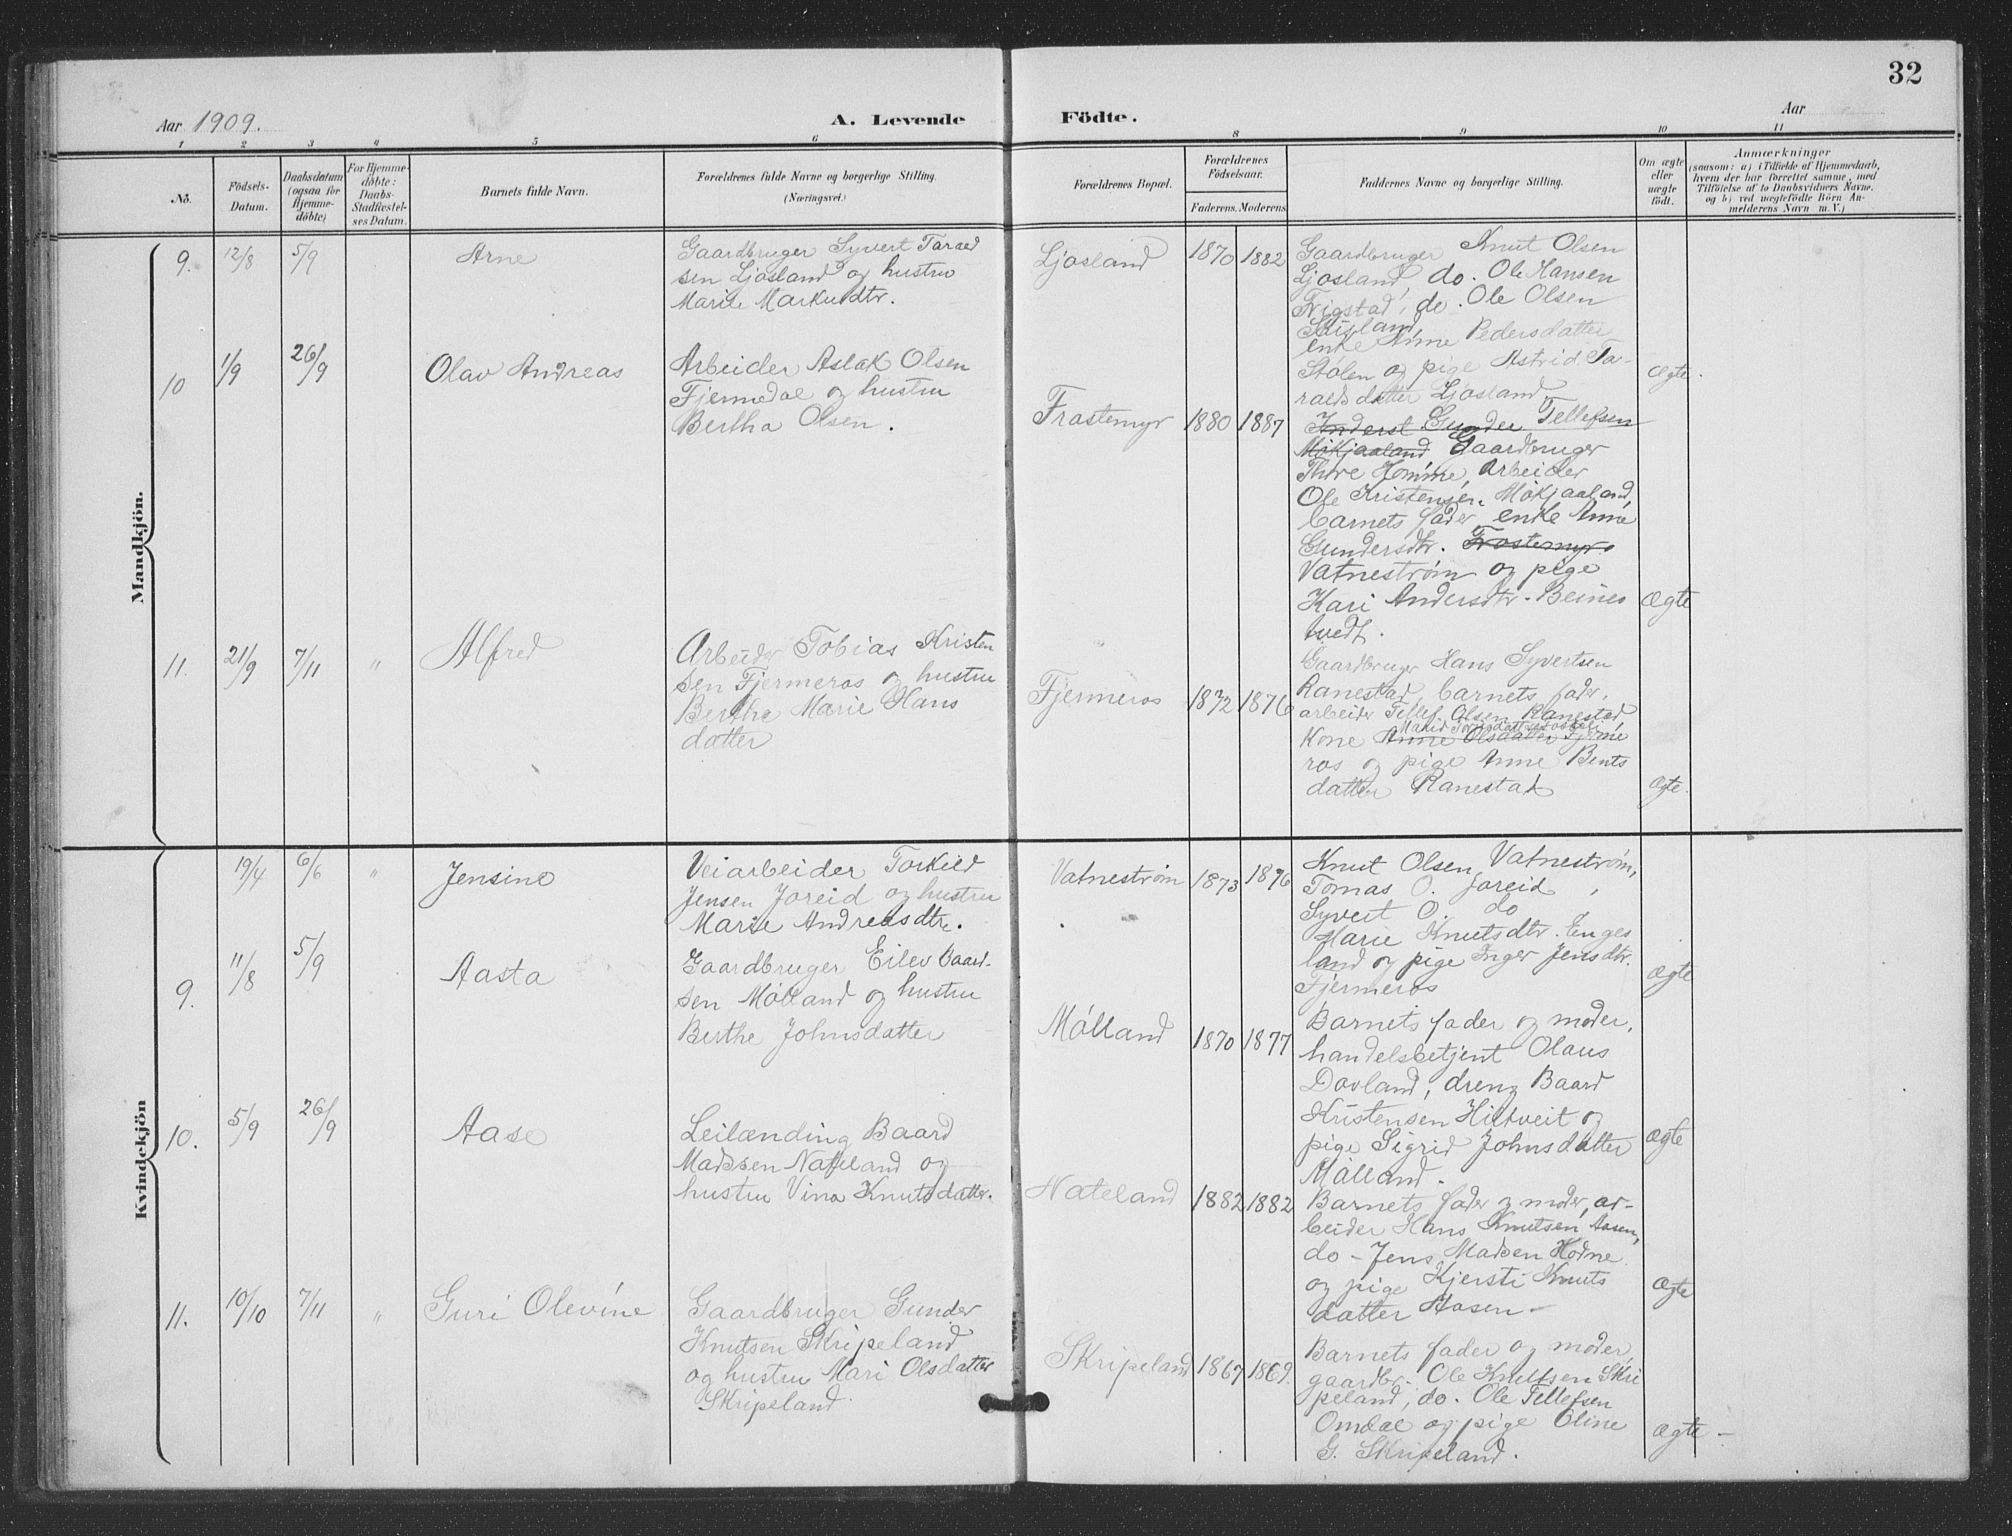 32
Aar 1909.
A. Levende Födte.
Aar
1 2 3 4 5 6 8 9 10 11
No.
Födsels-Datum.
Daabsdatum (ogsaa for Hjemme-döbte)
For Hjemme-döbte: Daabs-Stadfæstel-ses Datum.
Barnets fulde Navn.
Forældrenes fulde Navne og borgerlige Stilling.
(Næringsvei.)
Forældrenes Bopæl.
Forældrenes Födselsaar.
Faderens. Moderens
Faddernes Navne og borgerlige Stilling.
Om ægte eller uægte födt.
Anmærkninger
(saasom: a) i Tilfælde af Hjemmedaab,
hvem der har forrettet samme, med
Tilföielse af to Daabsvidners Navne.
og b) ved uægtefödte Börn An-
melderens Navn m. V.)
Mandkjön.
9. 12/8 5/9 Arne
Gaardbruger Syvert Tarald
sen Ljosland og hustru
Marie Markusdtr.
Ljosland 1870 1882
Gaardbruger Knut Olsen
Ljosland, do. Ole Hansen
Trigstad, do. Ole Olsen
Skisland
enke Anne Pedersdatter
Stølen og pige Astrid Ta-
raldsdatter Ljosland
ægte.
10 1/9 26/9 Olav Andreas
Arbeider Aslak Olsen
Fjermedal og hustru
Bertha Olsen.
Frostemyr 1880 1887
Inderst Gunder Tellefsen
Møkjaaland Gaardbruger
Thore Homme, Arbeider
Ole Kristensen Møkjaaland,
barnets fader, enke Anne
Gundersdtr. Frostemyr
Vatnestrøm og pige
Kari Andersdtr. Beines
tvedt.
Ægte
11. 21/9 7/11 " Alfred
Arbeider Tobias Kristen
sen Fjermeros og hustru
Berthe Marie Hans
datter
Fjermeros 1872 1876
Gaardbruger Hans Syvertsen
Ranestad, barnets fader,
arbeider Tellef Olsen Ranestad,
Kone Anne Olsdatter Fjerme
ros og pige Anne Bents
datter Ranestad
Ægte.
Kvindekjön
19/4 6/6 " Jensine
Veiarbeider Torkild
Jensen Joreid og hustru
Marie Andreasdtr.
Vatnestrøm 1873 1876
Knut Olsen Vatnestrøm,
Tomas O. Joreid,
Syvert O. do
Marie Knutsdtr. Enges
land og pige Inger Jensdtr.
Fjermeros
Ægte
9. 11/8 5/9 Aasta
Gaardbruger Eilev Baard-
sen Mølland og hustru
Berthe Johnsdatter
Mølland 1870 1877
Barnets fader og moder,
handelsbetjent Olaus
Dovland, dreng Baard
Kristensen Hiltveit og
pige Sigrid Johnsdatter
Mølland.
Ægte
10. 5/9 26/9 Aase
Leilænding Baard
Madssen Nateland og
hustru Vina Knutsdatter.
Nateland 1882 1882
Barnets fader og moder, ar-
beider Hans Knutsen Aasen,
do - Jens Madsen Hodne
og pige Kjersti Knuts
datter Aasen -
Ægte
11. 10/10 7/11 " Guri Olevine
Gaardbruger Gunder
Knutsen Skripeland
og hustru Mari Olsdatter
Skripeland.
Skripeland 1867 1869.
Barnets fader og moder,
gaardbr. Ole Knutsen Skri
peland, do. Ole Tellefsen
Omdal og pige Oline
G. Skripeland.
Ægte -